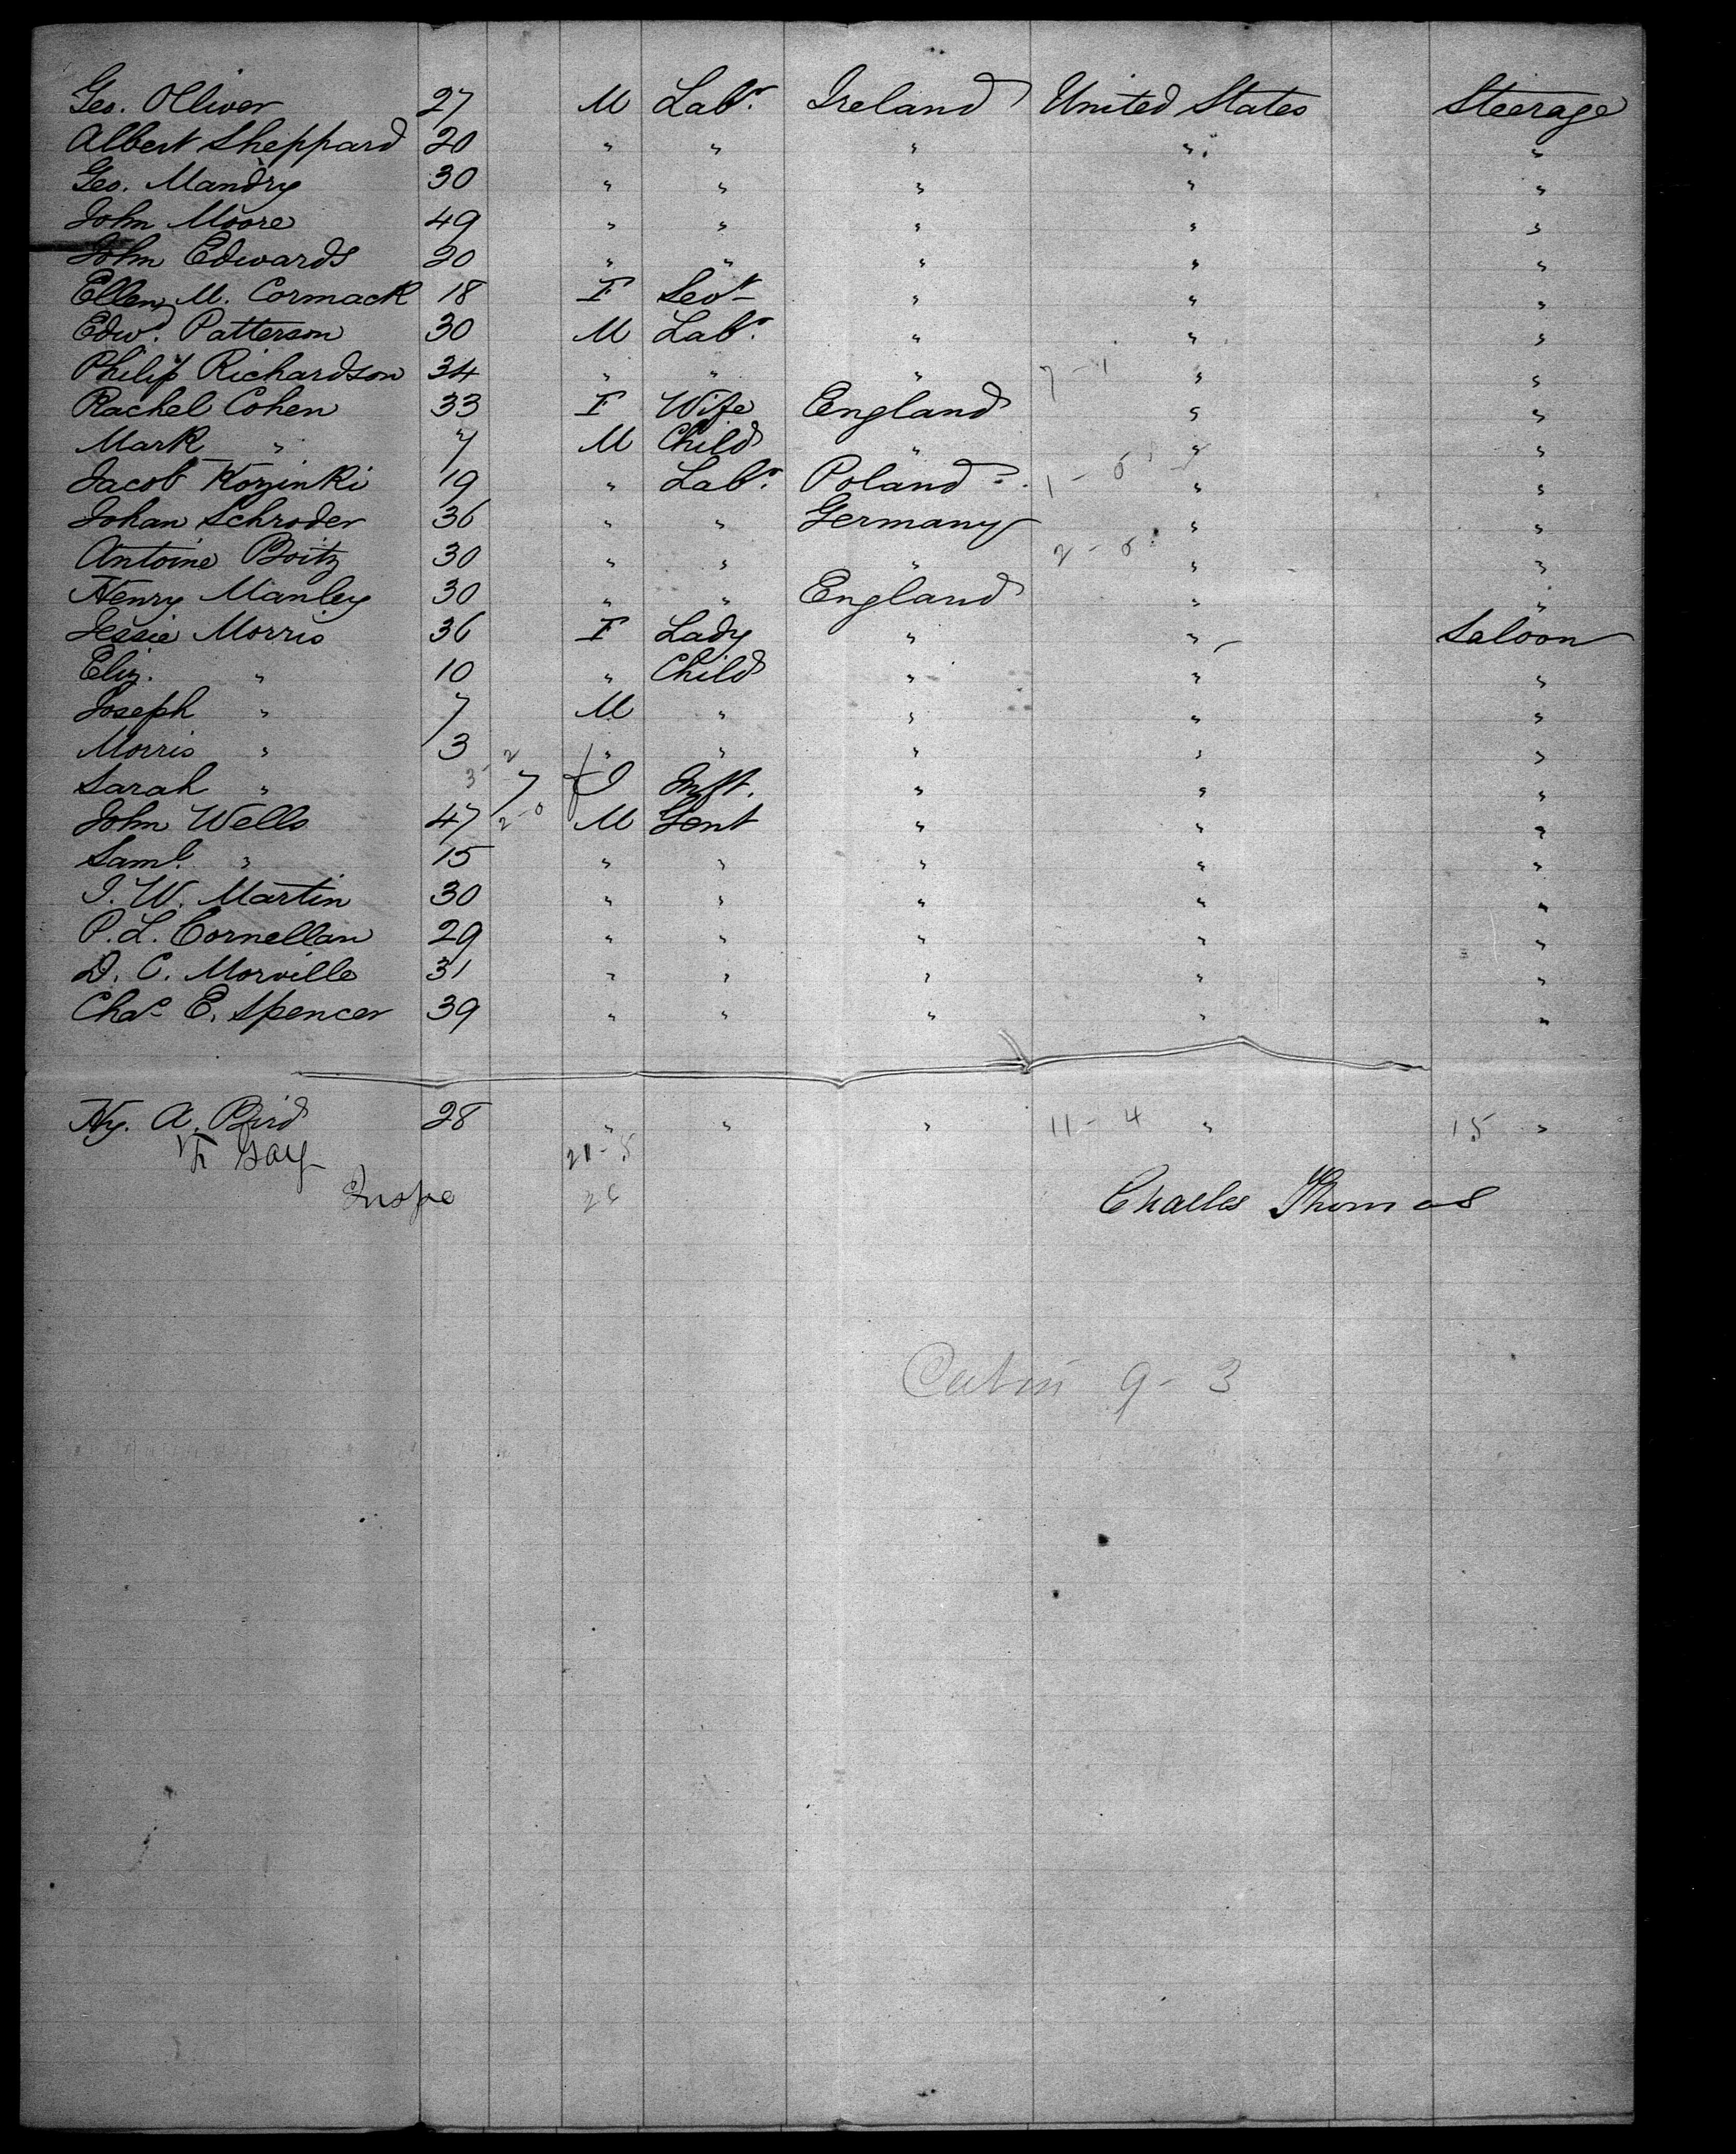 Geo. Olliver 27 M Labr. Ireland United States Steerage
Albert Sheppard 20 " " " " "
Geo. Mandry 30 " " " " "
John Moore 49 " " " " "
John Edwards 20 " " " " "
Ellen M. Cormack 18 F Sevt " " "
Edwd. Patterson 30 M Labr. " " "
Philip Richardson 34 " " " 7 - 1 " "
Rachel Cohen 33 F Wife England " "
Mark " 7 M Child " " "
Jacob Kozinki 19 " Labr. Poland 1 - 0 " "
Johan Schroder 36 " " Germany " "
Antoine Boitz 30 " " " 2 - 0 " "
Henry Manley 30 " " England " "
Jessie Morris 36 F Lady " " Saloon
Eliz. " 10 " Child " " "
Joseph " 7 M " " " "
Morris " 3 " " " " "
Sarah " 3 - 2 7 Inft. " " "
John Wells 47 2 - 0 M Gent " " "
Saml. " 15 " " " " "
I. W. Martin 30 " " " " "
P. L. Cornellan 29 " " " " "
D. C. Morville 31 " " " " "
Chas E. Spencer 39 " " " " "
Hy. A. Bird 28 " " " 11 - 4 " 15 "
Gay 21 - 5
Inspe 26 Charles Thomas
Cabin 9 - 3